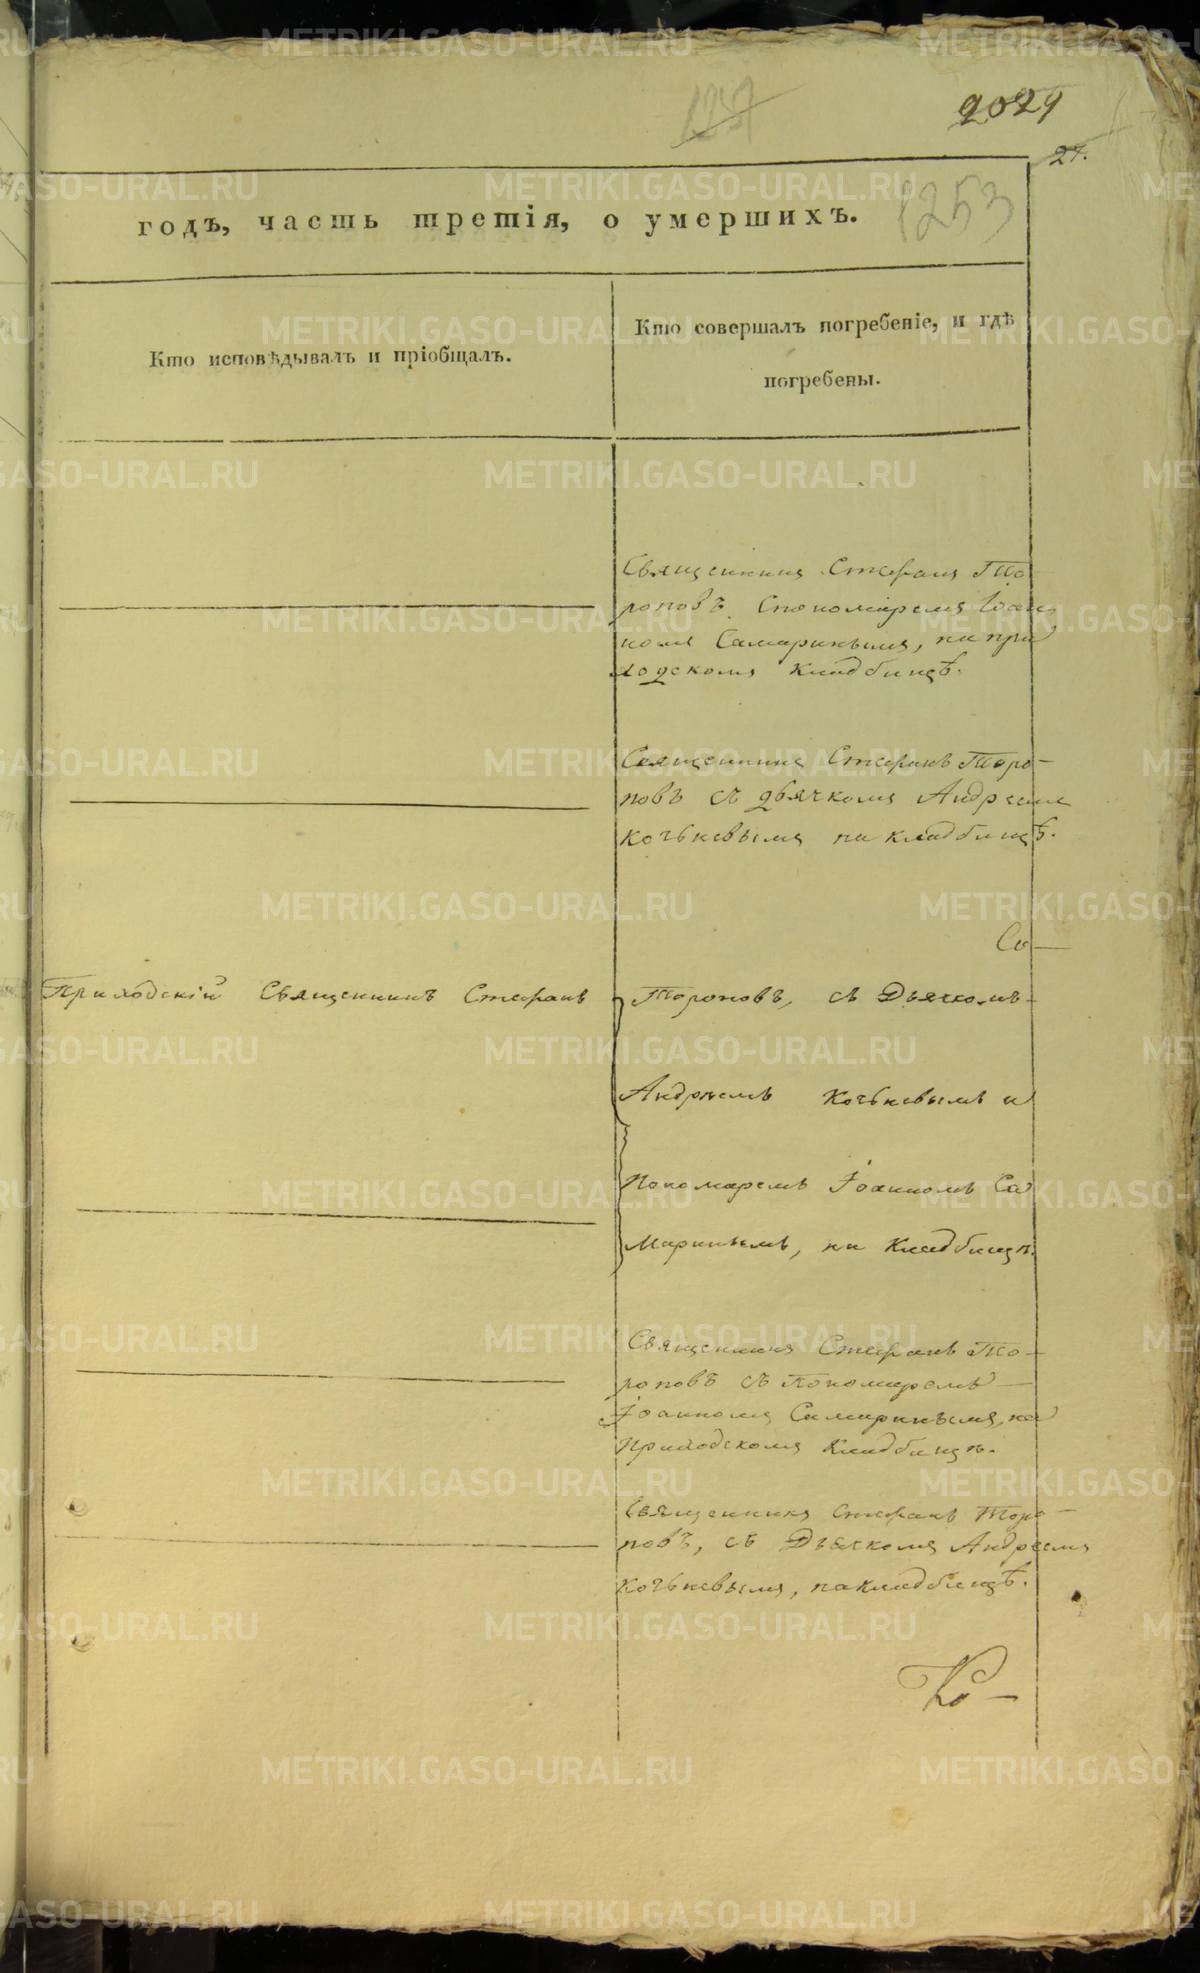 2029
27.
1253
годъ, часть третія, о умершихъ.
Кто исповѣдывалъ и пріобщалъ.
Кто совершалъ погребеніе, и гдѣ
погребены.
Священникъ Стефанъ То
роповъ, спономаремъ Іоан
номъ Самаринымъ, на при
ходскомъ кладбищѣ.
Священникъ Стефанъ Торо-
повъ съ дьячкомъ Андреемъ
Кочьневымъ на кладбищѣ.
Со-
Приходскій Священникъ Стефанъ
Тороповъ, съ Дьячкомъ
Андрѣемъ Кочьневымъ и
Пономаремъ Іоанномъ Са
маринымъ, на Кладбищѣ.
Священникъ Стефанъ То-
роповъ съ Пономаремъ
Іоанномъ Самаринымъ, на
Приходскомъ Кладбищѣ.
Священникъ Стефанъ Торо-
повъ, съ Дьячкомъ Андреемъ
Кочьневымъ, на кладбищѣ.
METRIKI.GASO-URAL.RU